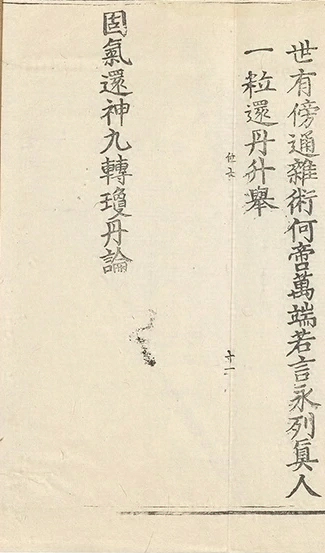 世有傍通雜術何啻萬端若言永列眞人
一粒還丹升舉
十一
固氣還神九轉瓊丹論